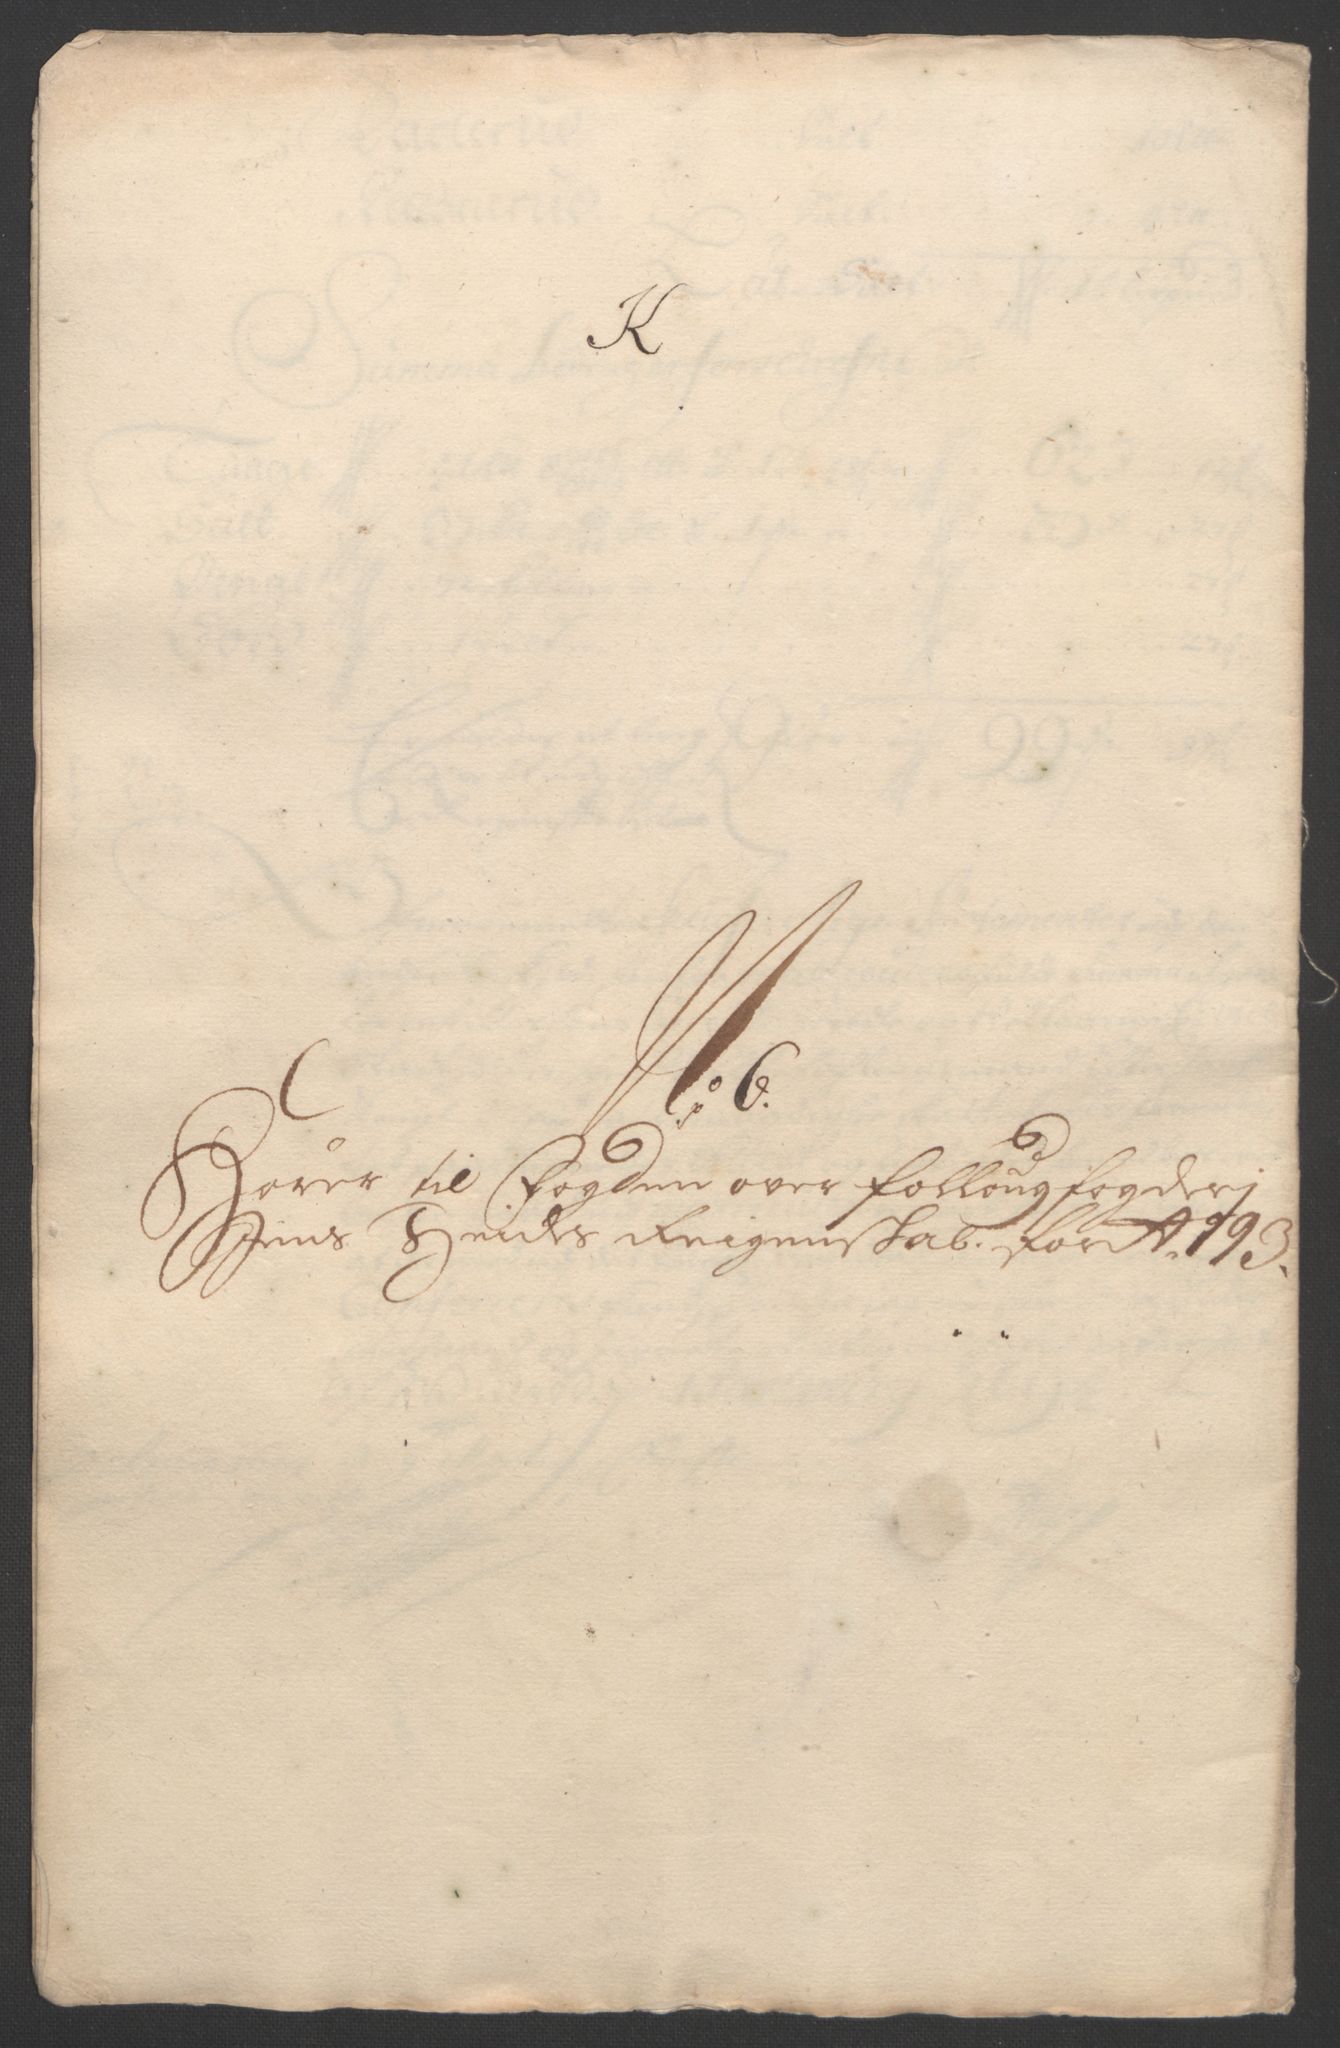 K
No: 6.
Hører til Fogden over Follough fogderj
Jens Heides Reigenskab. for A. 193.